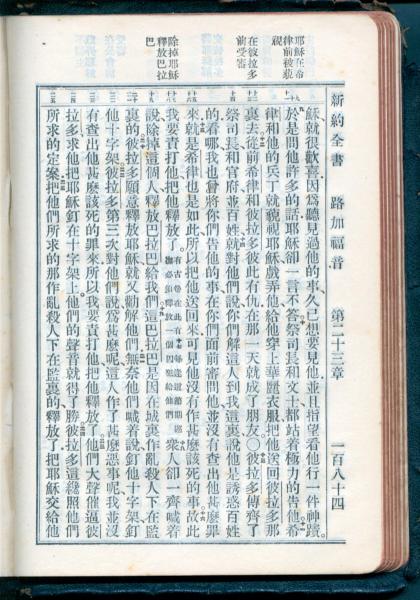 新約全書 路加福音 第二十三章 一百八十四
耶穌在希
律前被藐
視
在彼拉多
前受審
除掉耶穌
釋放巴拉
巴
穌就很歡喜因爲聽見過他的事久已想要見他並且指望看他行一件神蹟
於是問他許多的話耶穌却一言不答祭司長和文士都站着極力的告他希
律和他的兵丁就藐視耶穌戲弄他給他穿上華麗衣服把他送回彼拉多那
裏去從前希律和彼拉多彼此有仇在那一天就成了朋友○彼拉多傳齊了
祭司長和官府並百姓就對他們說你們解這人到我這裏說他是誘惑百姓
的看哪我也曾將你們告他的事在你們面前審問他並沒有查出他甚麼罪
來就是希律也是如此所以把他送回來可見他沒有作甚麼該死的事故此
我要責打他把他釋放了 有古卷在此有每逢這節期巡撫必須釋放一個囚犯給他們 衆人却一齊喊着
說除掉這個人釋放巴拉巴給我們這巴拉巴是因在城裏作亂殺人下在監
裏的彼拉多願意釋放耶穌就又勸解他們無奈他們喊着說釘他十字架釘
他十字架彼拉多第三次對他們說爲甚麼呢這人作了甚麼惡事呢我並沒
有查出他甚麼該死的罪來所以我要責打他把他釋放了他們大聲催逼彼
拉多求他把耶穌釘在十字架上他們的聲音就得了勝彼拉多這纔照他們
所求的定案把他們所求的那作亂殺人下在監裏的釋放了把耶穌交給他